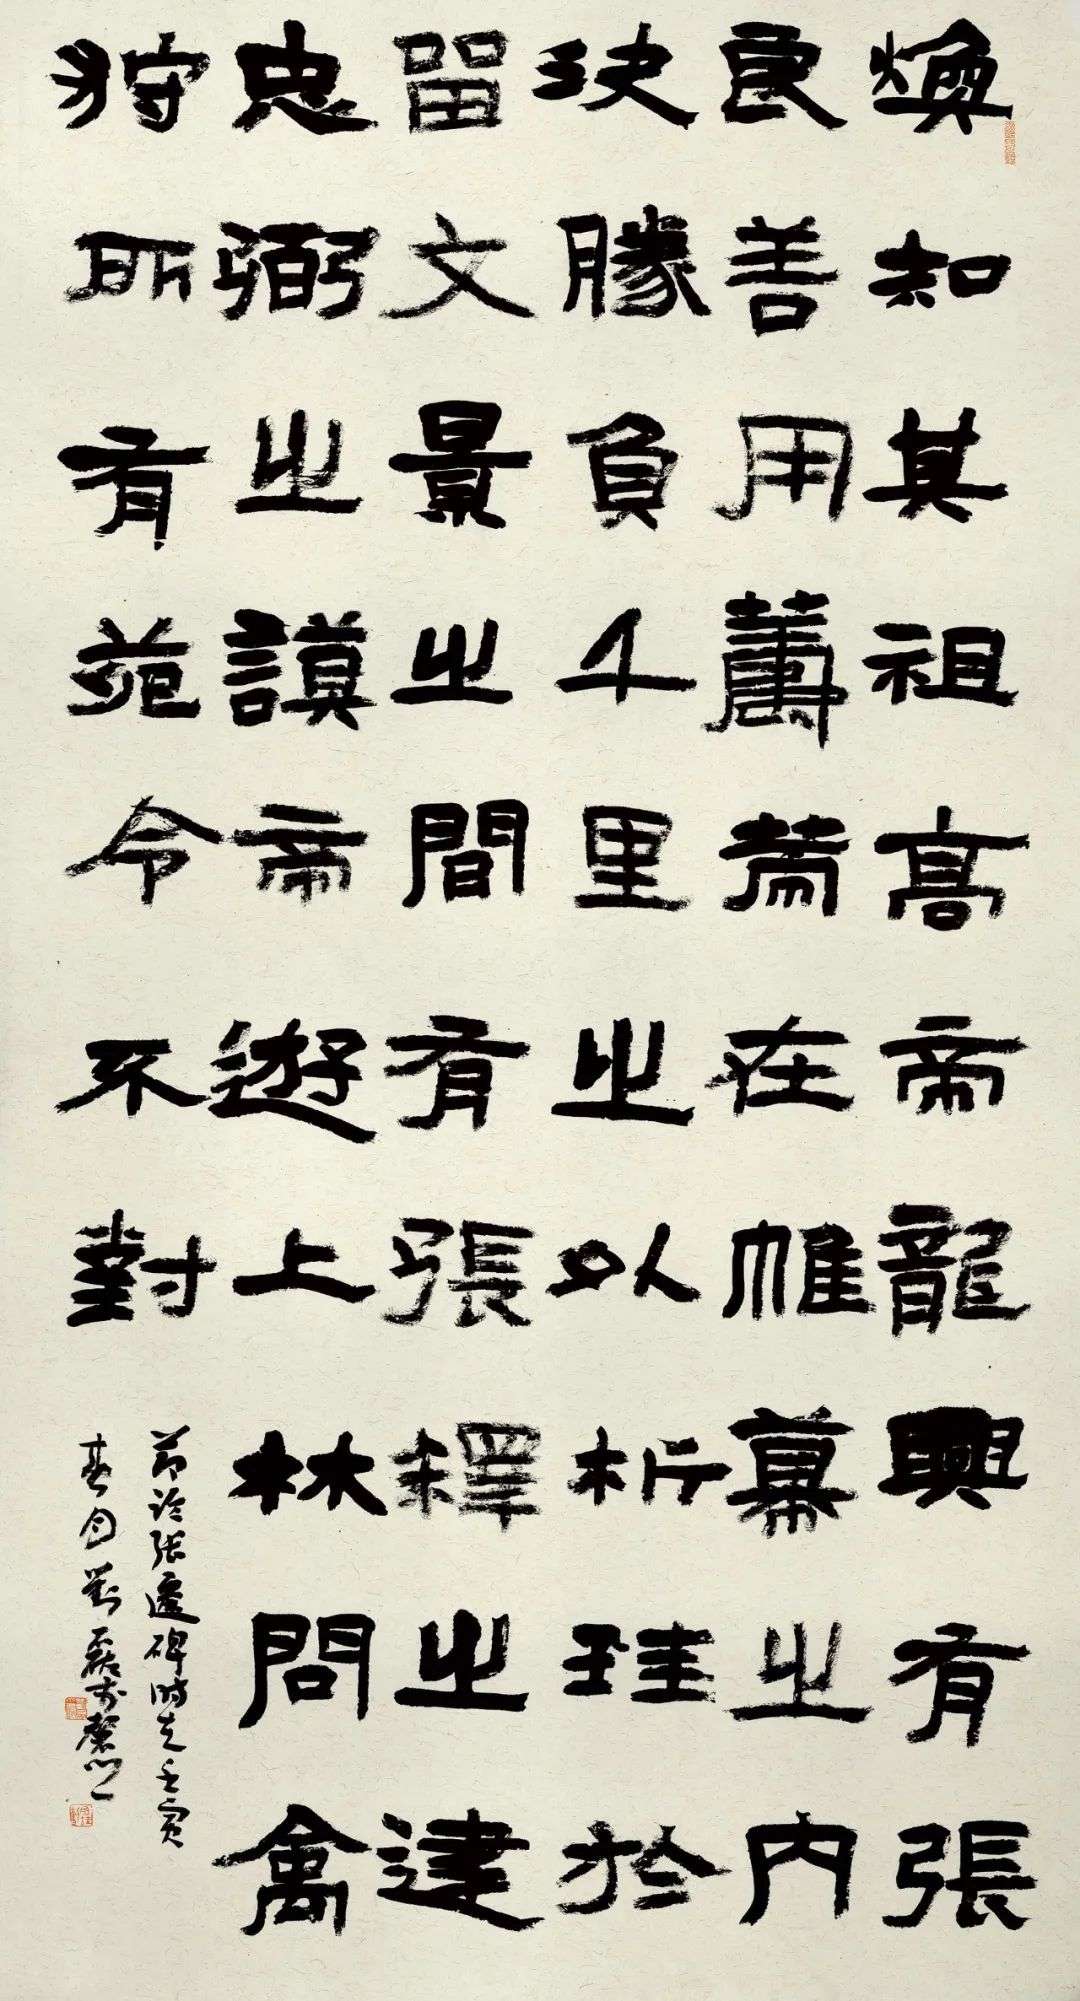 煥知其祖高帝龍興有張
良善用籌策在帷幕之內
決勝負千里之外析珪於
留文景之間有張釋之建
忠弼之謨帝遊上林問禽
狩所有苑令不對
節臨張遷碑時在壬寅
春月劉磊於